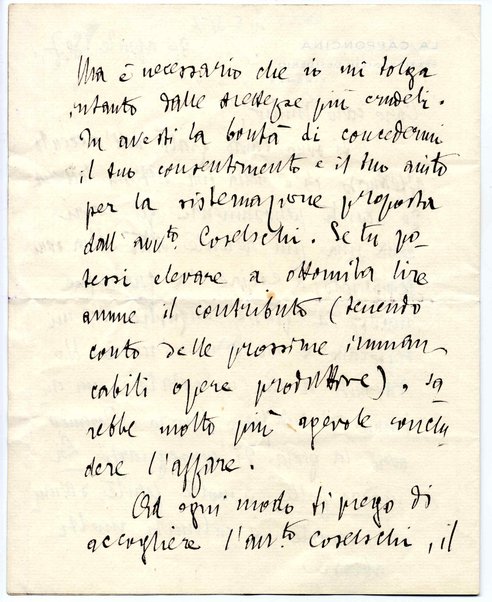 Ma è necessario che io mi tolga
intanto dalle strettezze più crudeli.
Tu avesti la bontà di concedermi
il tuo consentimento e il tuo aiuto
per la sistemazione proposta
dall'avv.to Coselschi. Se tu po-
tessi elevare a ottomila lire
annue il contributo (tenendo
conto delle prossime imman
cabili opere produttive), sa
rebbe molto più agevole conclu
dere l'affare.
Ad ogni modo ti prego di
accogliere l'avv.to Coselschi, il